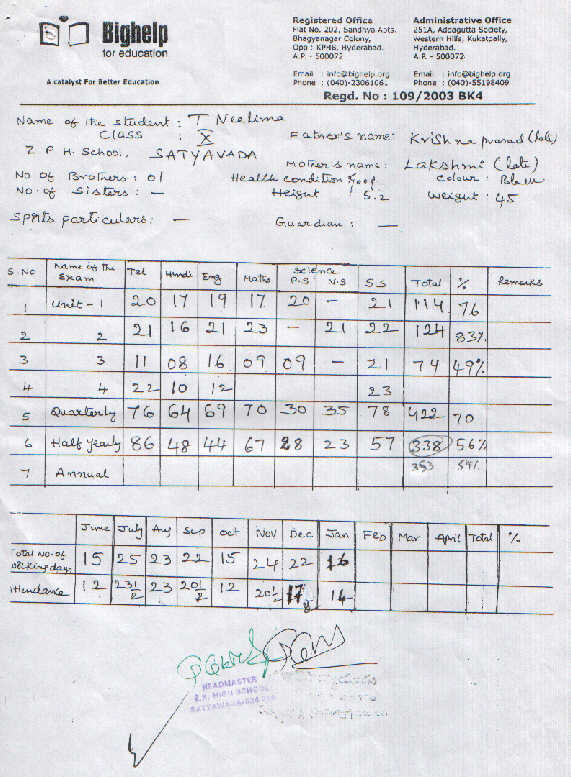 Bighelp
for education
A catalyst For Better Education
Registered Office
Flat No. 202, Sandhya Apts.
Bhagyanagar Colony,
Opp : KPHB, Hyderabad.
A.P. - 500072
Email : info@bighelp.org
Phone : (040)-23061061
Administrative Office
251A, Addagutta Society,
Western Hills, Kukatpally,
Hyderabad.
A.P. - 500072
Email : info@bighelp.org
Phone : (040)-55198409
Regd. No : 109/2003 BK4
Name of the student : T Neelima
Class : X
Father's name: Krishna prasad (late)
Z P H. School, SATYAVADA
Mother's name: Lakshmi (late)
No Of Brothers : 01 Health condition : good colour :
No. of Sisters : — Height : 5.2 Weight : 45
Sports particulars : — Guardian : —
S.No Name of the Exam Tel Hindi Eng Maths Science P.S N.S S.S Total % Remarks
1 Unit - 1 20 17 19 17 20 - 21 114 76
2 2 21 16 21 23 - 21 22 124 83%
3 3 11 08 16 09 09 - 21 74 49%
4 4 22 10 12 23
5 Quarterly 76 64 69 70 30 35 78 422 70
6 Half Yearly 86 48 44 67 28 23 57 338 56%
7 Annual 353 59%
June July Aug Sep Oct Nov Dec Jan Feb Mar April Total %
Total No. of Working days 15 25 23 22 15 24 22 16
Attendance 12 23 1/2 23 20 1/2 12 20 1/2 17 14
HEADMASTER
Z.P. HIGH SCHOOL